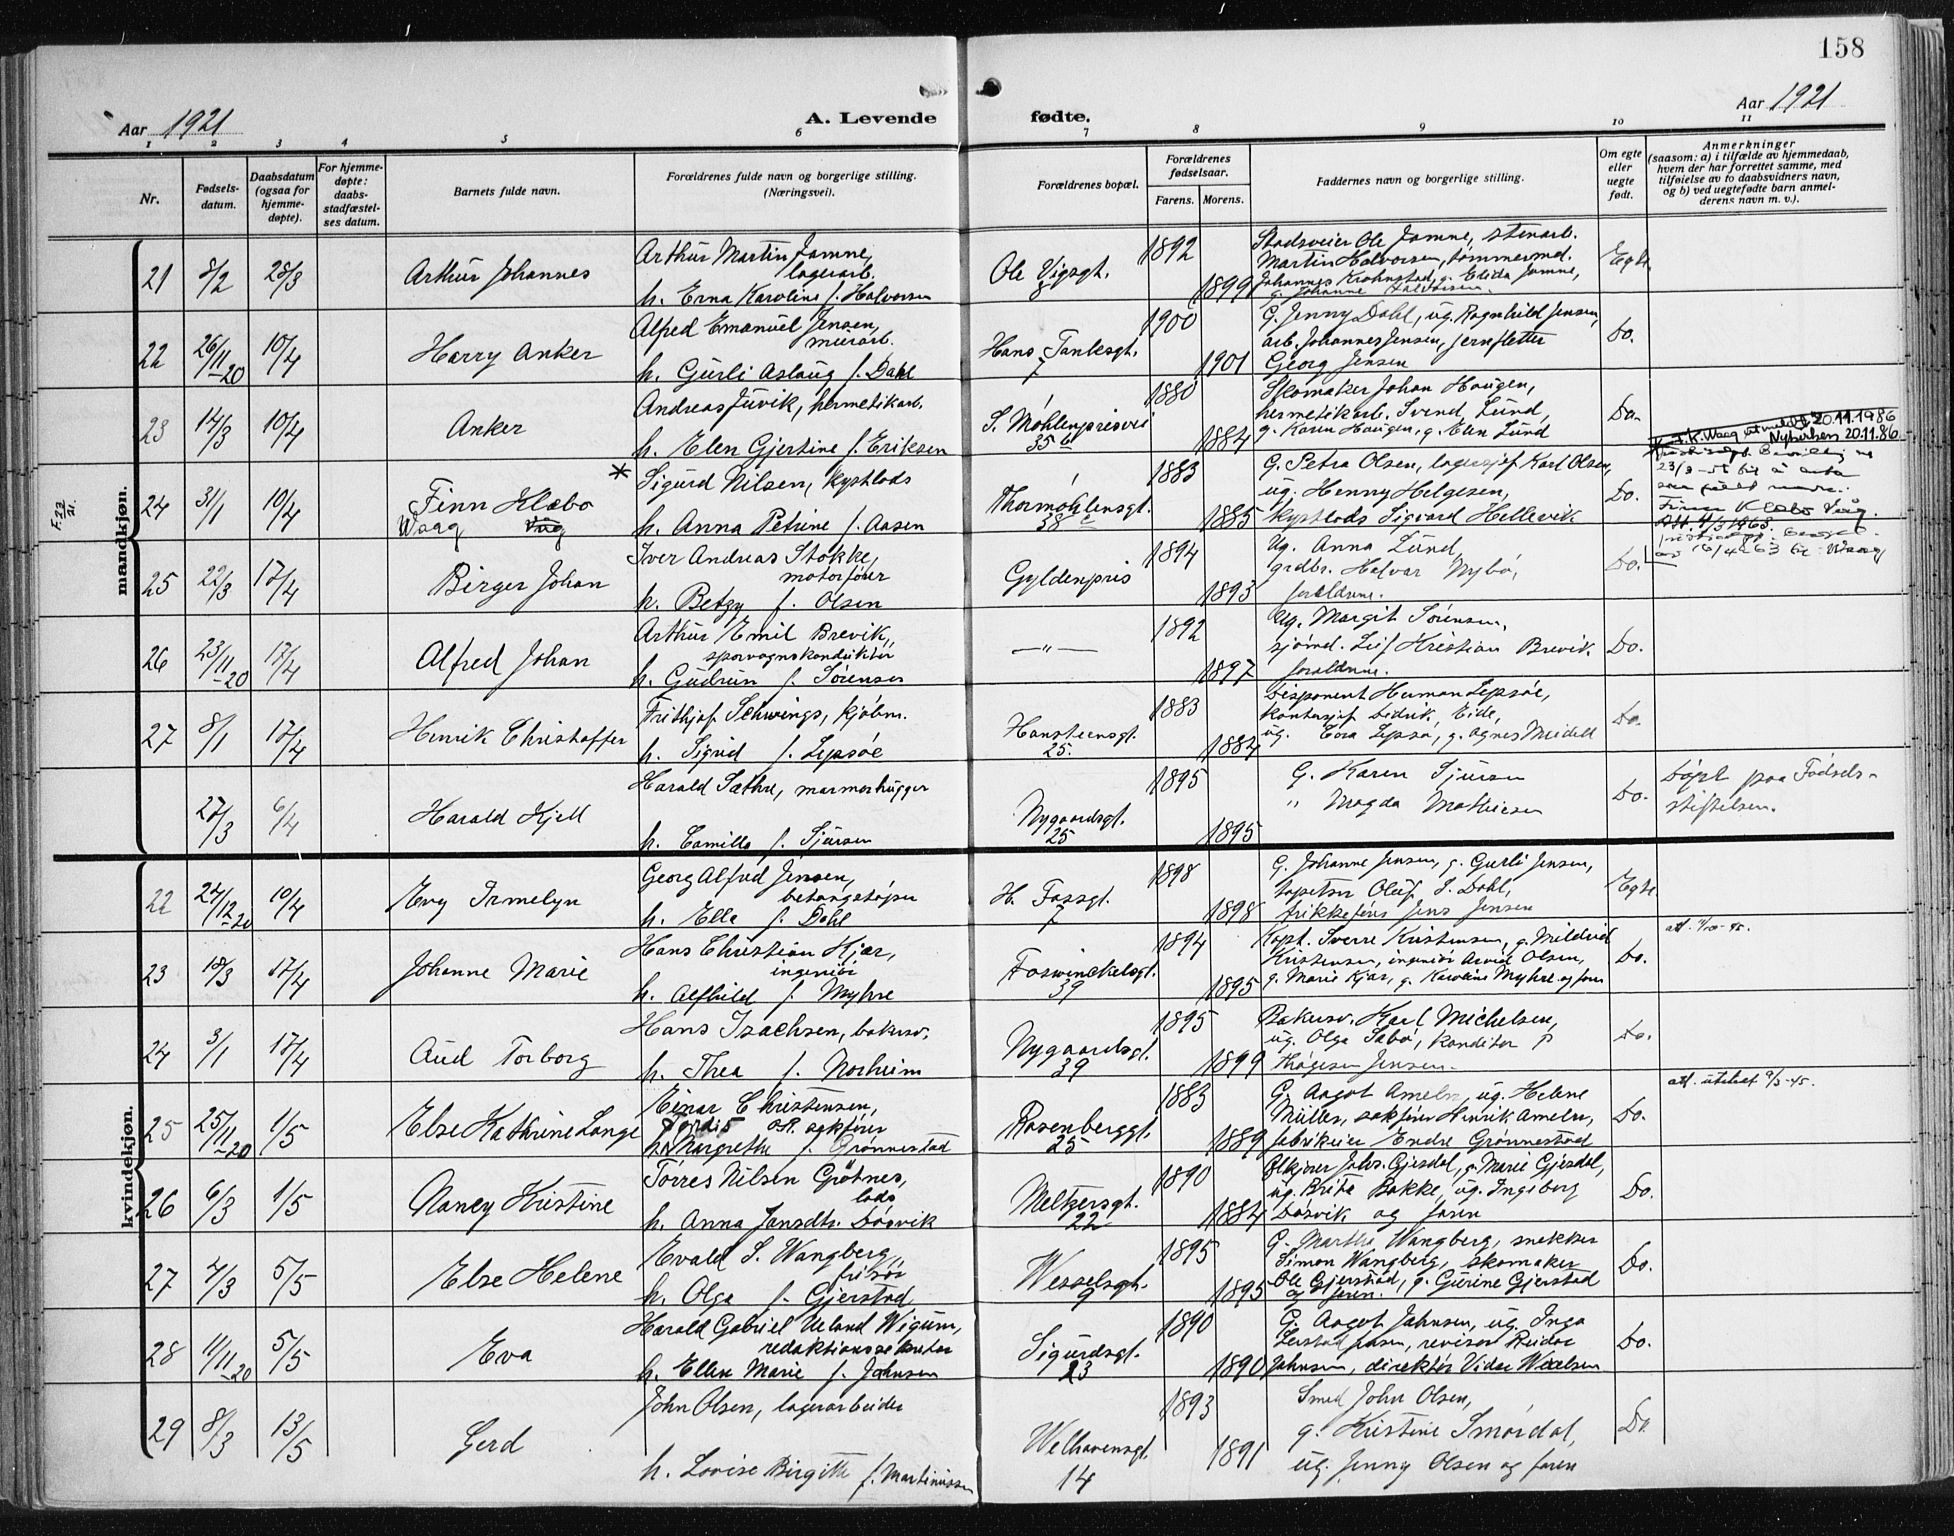 158
Aar 1921
A. Levende fødte.
Aar 1921
1 2 3 4 5 6 7 8 9 10 11
Nr.
Fødsels-
datum.
Daabsdatum
(ogsaa for
hjemme-
døpte).
For hjemme-
døpte:
daabs-
stadfæstel-
ses datum.
Barnets fulde navn.
Forældrenes fulde navn og borgerlige stilling.
(Næringsvei).
Forældrenes bopæl.
Forældrenes
fødselsaar.
Farens. Morens.
Faddernes navn og borgerlige stilling.
Om egte
eller
uegte
født.
Anmerkninger
(saasom: a) i tilfælde av hjemmedaab,
hvem der har forrettet samme, med
tilføielse av to daabsvidners navn,
og b) ved uegtefødte barn anmel-
derens navn m. v.).
mandkjøn.
21 8/2 28/3 Arthur Johannes
Arthur Martin Jamne,
lagerarb.
h. Erna Karoline f. Halvorsen
Ole Vigsgt.
8
1892
1899
Stadsveier Ole Jamne, stenarb.
Martin Halvorsen, tømmermd.
Johannes Krohnstad, g. Elida Jamne,
g. Johanne Halvorsen.
Egte.
22 26/11-20 10/4 Harry Anker
Alfred Emanuel Jensen,
murarb.
h. Gurli Aslaug f. Dahl
Hans Tanksgt.
7
1900
1901
G. Jenny Dahl, ug. Ragnhild Jensen,
arb. Johannes Jensen, jernfletter
Georg Jensen
Do.
23 14/3 10/4 Anker
Andreas Juvik, hermetikarb.
h. Elen Gjertine f. Eriksen
S. Møhlenprisvei
35 b
1880
1884
Skomaker Johan Haugen,
hermetikarb. Svend Lund,
g. Karen Haugen, g. Elen Lund
Do.
F. 23/21.
24 31/1 10/4 Finn Klæbo
Waag Våg
* Sigurd Nilsen, kystlods
h. Anna Petrine f. Aasen
Thormøhlensgt.
38 c
1883
1885
G. Petra Olsen, lagersjef Karl Olsen,
ug. Henny Helgesen,
kystlods Sigvard Hellevik
Do.
F. K. Waag utmeldt 20.11.1986
20.11.86
Finn Klæbo Våg.
Att. 4/3 1963.
16/4-63 til Waag
25 22/3 17/4 Birger Johan
Iver Andreas Stokke,
motorfører
h. Betzy f. Olsen
Gyldenpris
1894
1893
Ug. Anna Lund,
grdbr. Halvar Nybø,
forældrene.
Do.
26 23/11-20 17/4 Alfred Johan
Arthur Emil Brevik,
sporvognskonduktør
h. Gudrun f. Sørensen
—"—
1892
1897
Ug. Margit Sørensen,
sjømd. Leif Kristian Brevik
forældrene.
Do.
27 8/1 17/4 Henrik Christoffer
Frithjof Schwings, kjøbm.
h. Sigrid f. Lepsøe
Hansteensgt.
25.
1883
1884
Disponent Herman Lepsøe,
kontorsjef Didrik Eide,
ug. Lepsø, g. Agnes Meidell
Do.
27/3 6/4 Harald Kjell
Harald Sæthre, marmorhugger
h. Camilla f. Sjursen
Nygaardsgt.
25
1895
1895
G. Karen Sjursen
" Magda Mathiesen
Do.
Døpt paa Fødsels-
stiftelsen.
kvindekjøn.
22 24/12-20 10/4 Evy Irmelyn
Georg Alfred Jensen,
betongstøper
h. Ella f. Dahl
H. Fossgt.
7
1898
1898
G. Johanne Jensen, g. Gurli Jensen,
tapetser Oluf S. Dahl,
trikkefører Jens Jensen
Egte.
23 18/3 17/4 Johanne Marie
Hans Christian Kjær,
ingeniør
h. Alfhild f. Myhre
Foswinckelsgt.
39
1894
1895
Kapt. Sverre Kristensen, g. Mildrid
Kristensen, ingeniør Arvid Olsen,
g. Marie Kjær, g. Karoline Myhre og faren
Do.
att. 4/10-45.
24 3/1 17/4 Aud Torborg
Hans Isachsen, bakersv.
h. Thea f. Norheim
Nygaardsgt.
39
1895
1899
Bakersv. Karl Michelsen,
ug. Olga Sabø, konditor
Jensen.
Do.
25 25/11-20 1/5 Else Kathrine Lange
Einar Christensen,
Tordis o.r. sakfører
h. Margrethe f. Grønnestad
Rosenberggt.
25
1883
1889
G. Aagot Ameln, ug. Helene
Müller, sakfører Henrik Ameln,
fabrikeier Endre Grønnestad
Do.
att. utstedt 9/3-45.
26 6/3 1/5 Nancy Kristine
Tørres Nilsen Grøtnes,
lods
h. Anna Jansdtr. Døsvik
Meltzersgt.
22
1890
1884
Johs. Gjesdal, g. Marie Gjesdal,
ug. Brita Bakke, ug. Ingeborg
Døsvik og faren
Do.
27 7/3 5/5 Else Helene
Evald S. Wangberg,
frisør
h. Olga f. Gjerstad
Wesselsgt.
9
1895
1895
G. Martha Wangberg, snekker
Simon Wangberg, skomaker
Ole Gjerstad, g. Gurine Gjerstad
og faren.
Do.
28 11/11-20 5/5 Eva
Harald Gabriel Ueland Wigum,
redaktionssekretær
h. Ellen Marie f. Johnsen
Sigurdsgt.
23
1890
1890
G. Aagot Johnsen, ug. Inga
revisor Reidar
Johnsen, direktør Vidar
Do.
29 8/3 13/5 Gerd
John Olsen, lagerarbeider
h. Lovise Birgitte f. Martinussen
Welhavensgt.
14
1893
1891
Smed John Olsen,
g. Kristine Smørdal,
ug. Jenny Olsen og faren
Do.